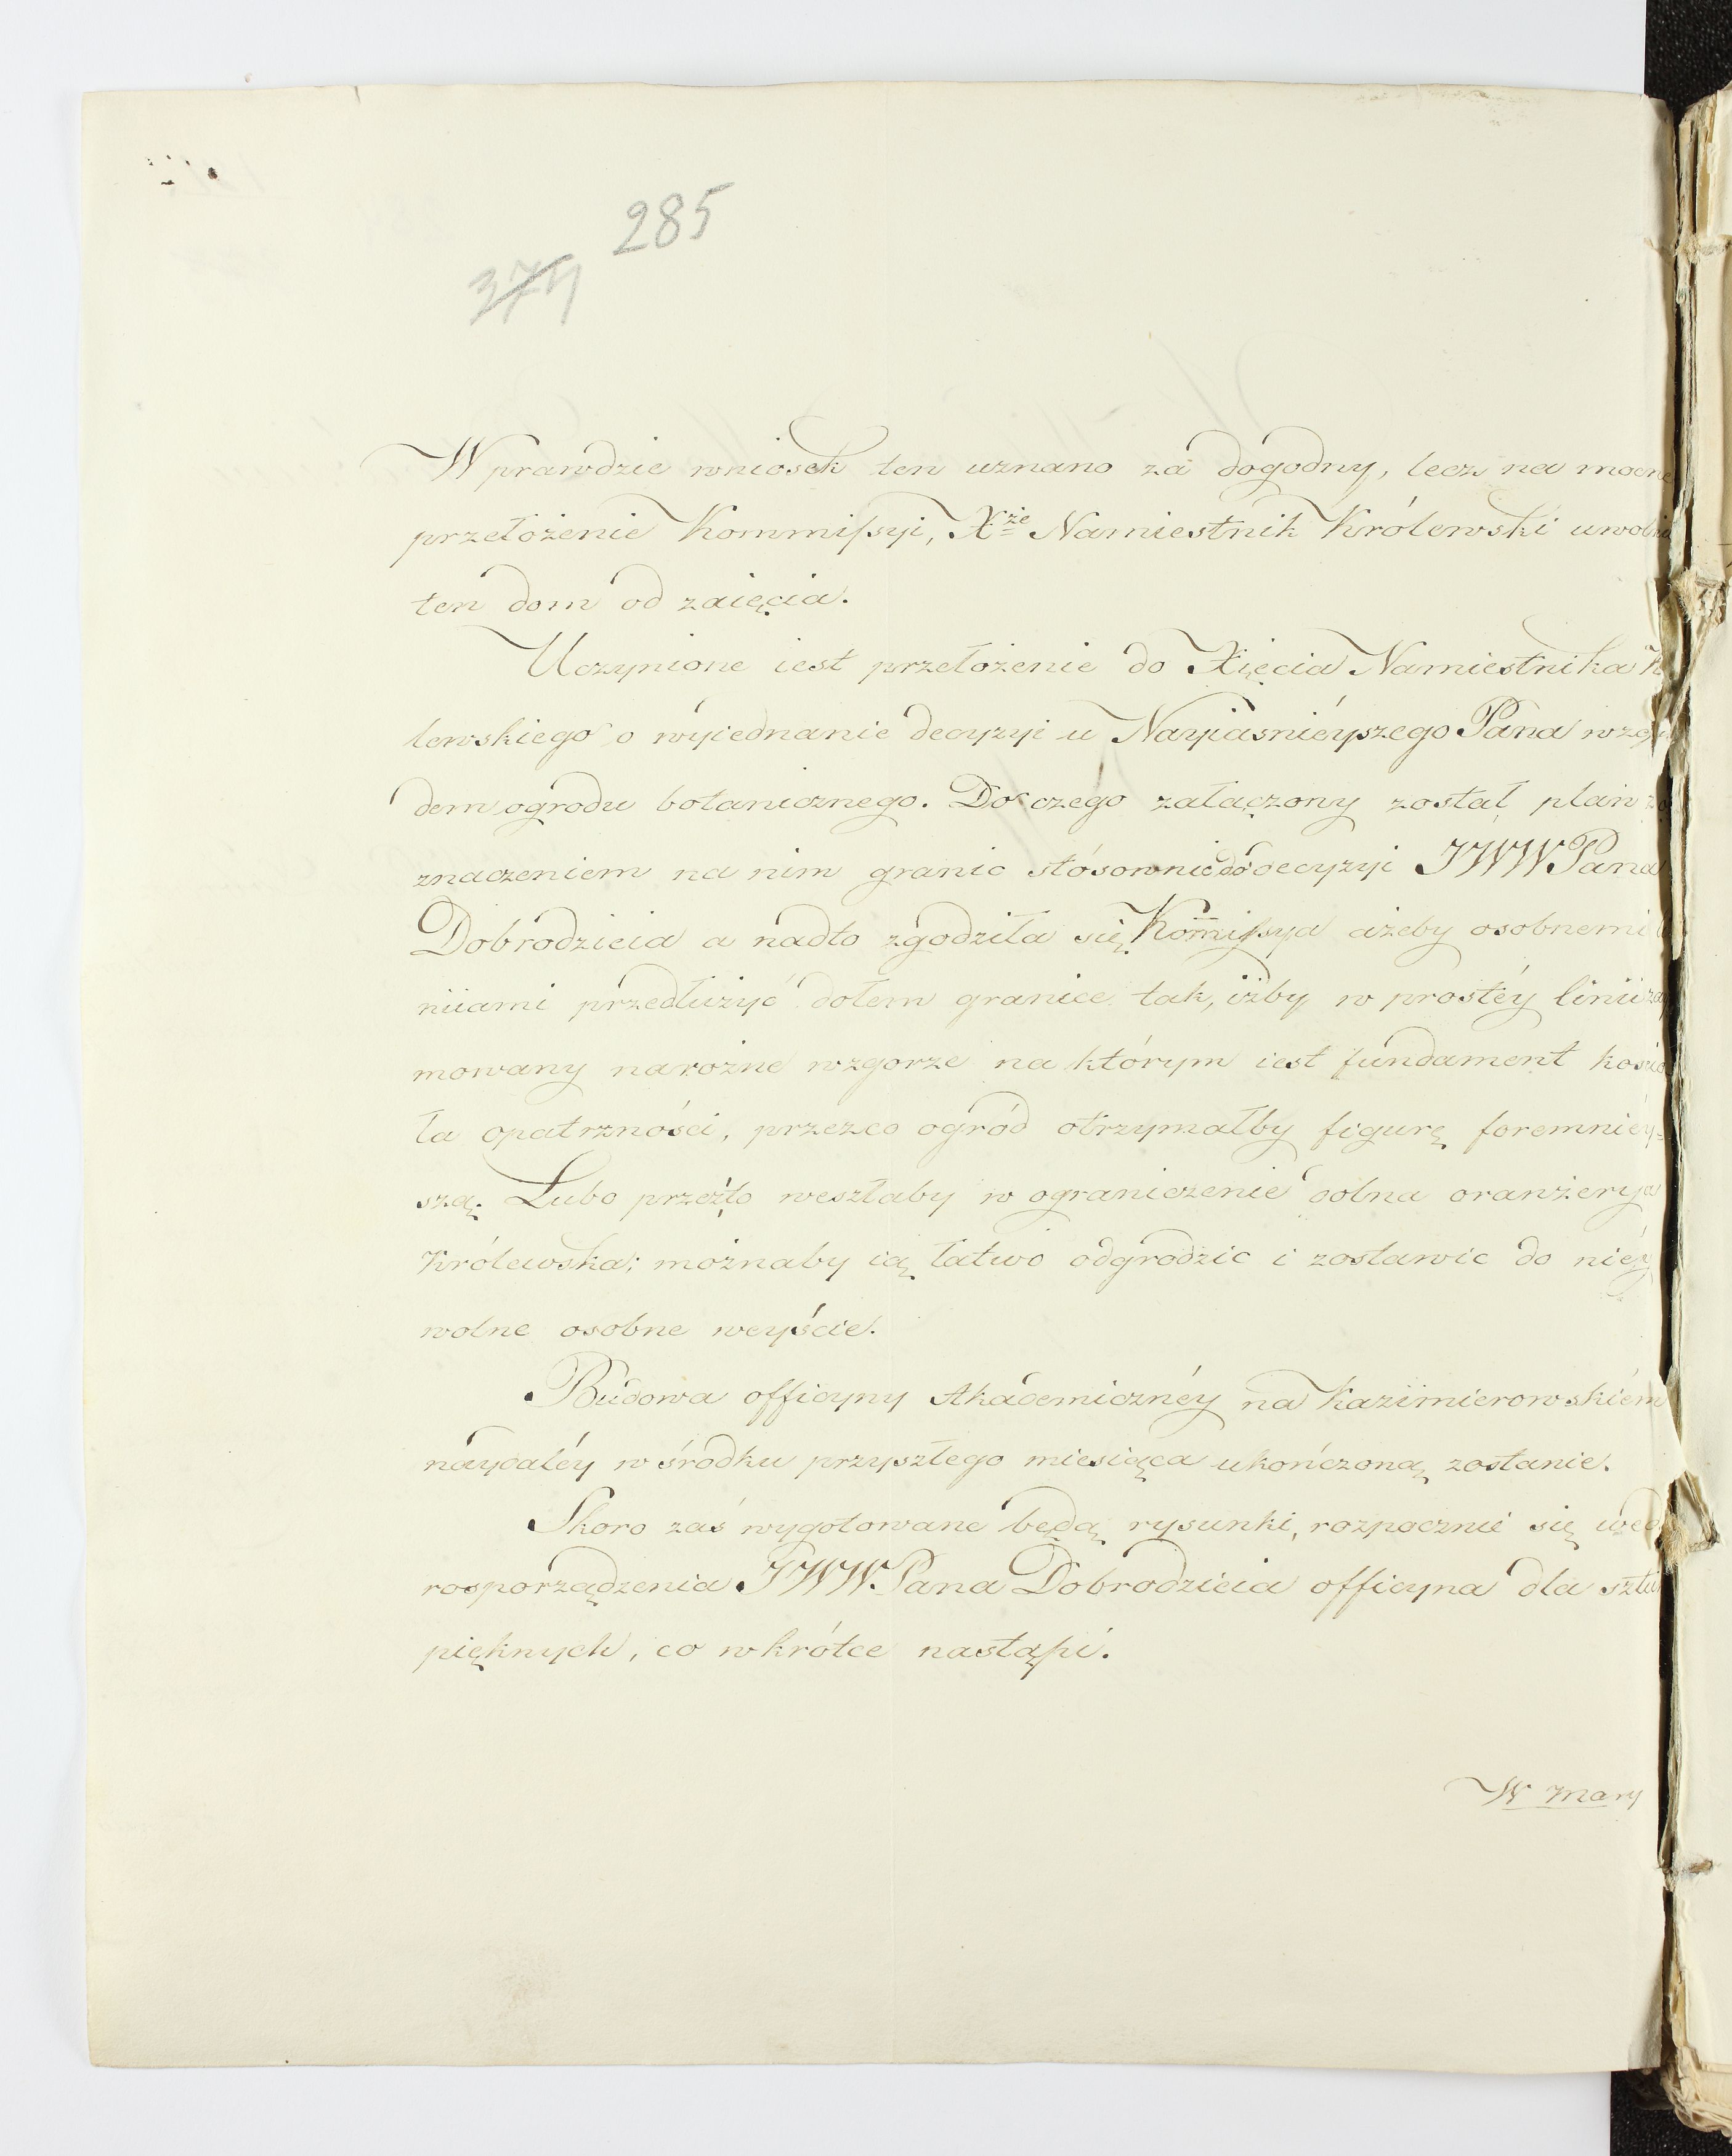 285
374
W prawdzie wniosek ten uznano za dogodny, lecz na mocne
przełożenie Kommissyi, Xże Namiestnik Królewski uwolni
ten dom od zaięcia.
Uczynione iest przełożenie do Xięcia Namiestnika K
lewskiego o wyiednanie decyzyi u Nayiasniéyszego Pana wzglę
dem ogrodu botanicznego. Do czego załączony został plan z
znaczeniem na nim granic stósownie do decyzyi JWW Pana
Dobrodzieia a nadto zgodziła się Kommissya ażeby osobnemi
niiami przedłużyć dołem granice tak, iżby w prostéy linii
mowany narożne wzgorze na którym iest fundament kościo
ła opatrzności, przezco ogród otrzymałby figurę foremniéy=
szą. Lubo przezto weszłaby w ograniczenie dolna oranżerya
Królewska; możnaby ią łatwo odgrodzic i zostawic do niéy
wolne osobne weyście.
Budowa officyny Akademicznéy na Kazimierowskiém
náydaléy w środku przyszłego miesiąca ukończoną zostanie.
Skoro zaś wygotowane będą rysunki, rozpocznie się wed
rosporządzenia JWW. Pana Dobrodzieia officyna dla sztu
pięknych, co wkrótce nastąpi.
W mary